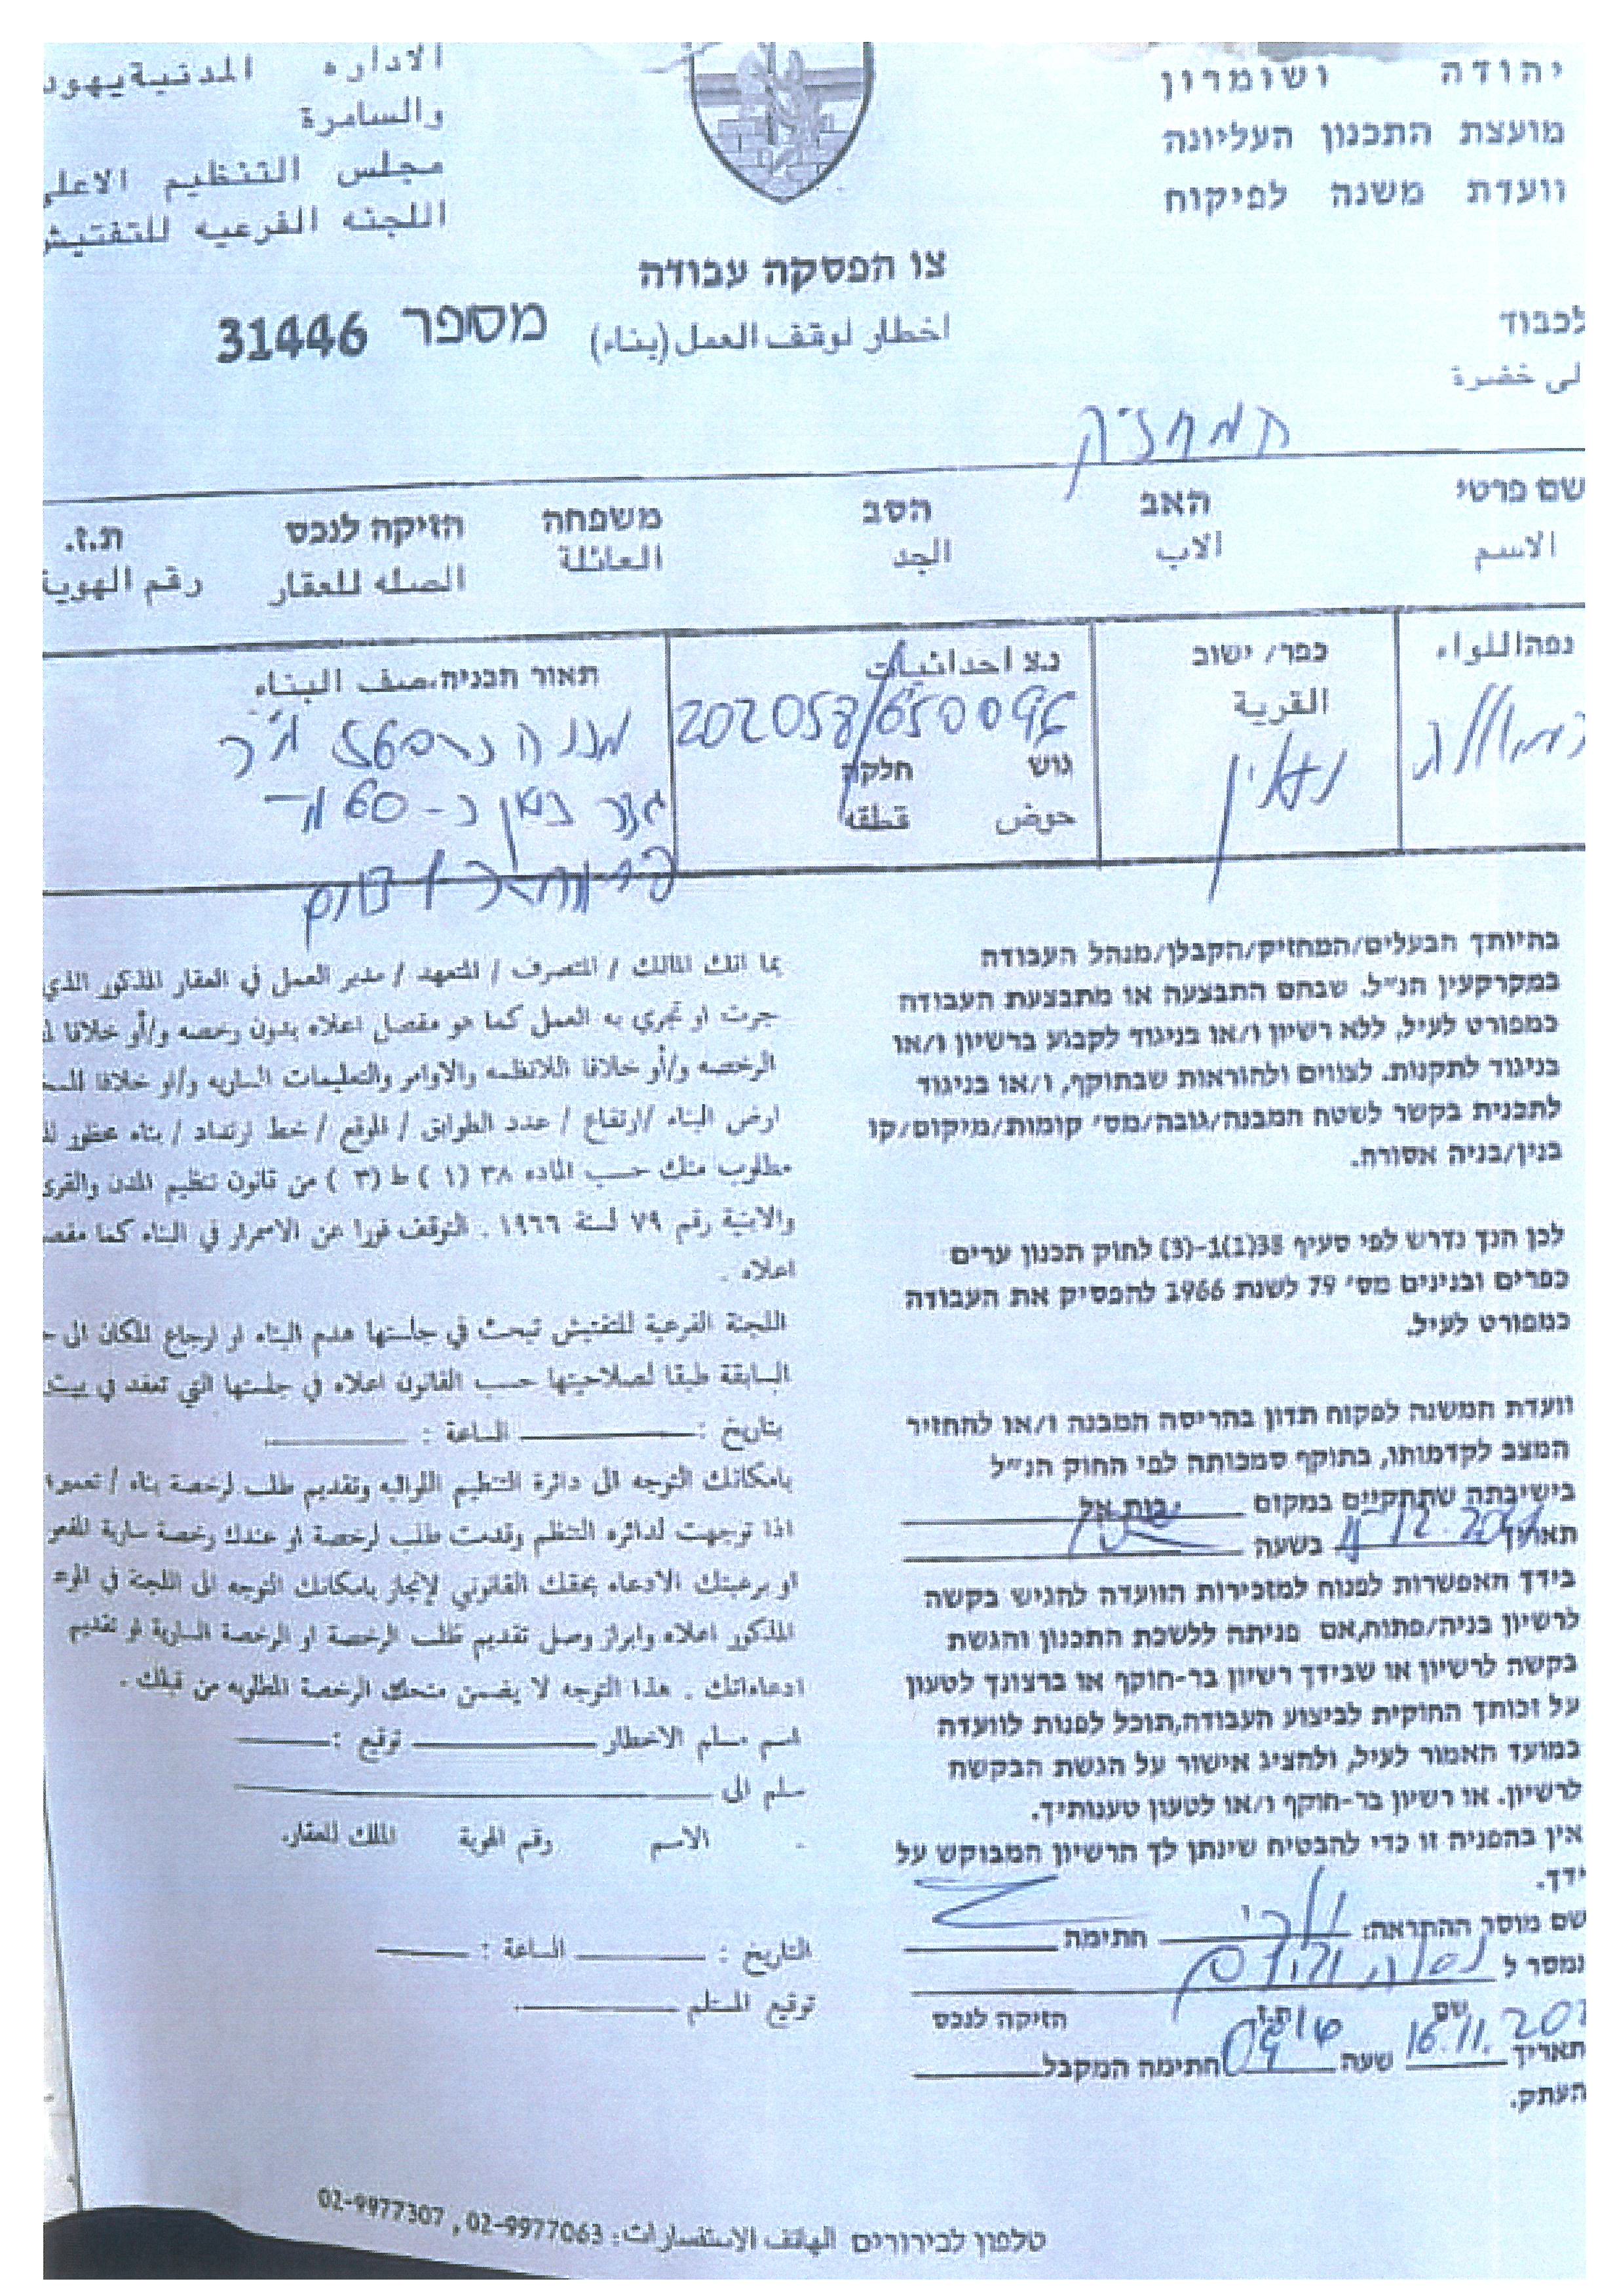 יהודה ושומרון
מועצת התכנון העליונה
וועדת משנה לפיקוח
الاداره المدنية يهود
والسامرة
مجلس التنظيم الاعلى
اللجنه الفرعيه للتفتيش
צו הפסקה עבודה
اخطار لوقف العمل (بناء)
מספר 31446
לכבוד
لى حضرة
המחזיק
שם פרטי האב הסב משפחה הזיקה לנכס ת.ז.
الاسم الاب الجد العائلة الصله للعقار رقم الهوية
נפה اللواء
כפר/ ישוב
القرية
נעלין
נ.צ احداثيات
202058/650094
גוש חלקה
حوض قطقه
תאור תבניה، صف البناء
בהיותך הבעלים/המחזיק/הקבלן/מנהל העבודה
במקרקעין הנ״ל. שבהם התבצעה או מתבצעת העבודה
כמפורט לעיל, ללא רשיון ו/או בניגוד לקבוע ברשיון ו/או
בניגוד לתקנות. לצווים ולהוראות שבתוקף, ו/או בניגוד
לתכנית בקשר לשטח המבנה/גובה/מס׳ קומות/מיקום/קו
בנין/בניה אסורה.
לכן הנך נדרש לפי סעיף 38(1)1-(3) לחוק תכנון ערים
כפרים ובנינים מס׳ 79 לשנת 1966 להפסיק את העבודה
כמפורט לעיל.
וועדת המשנה לפקוח תדון בהריסה המבנה ו/או להחזיר
המצב לקדמותו, בתוקף סמכותה לפי החוק הנ״ל
בישיבתה שתתקיים במקום בית אל
תאריך בשעה
בידך האפשרות לפנות למזכירות הוועדה להגיש בקשה
לרשיון בניה/פתוח,אם פניתה ללשכת התכנון והגשת
בקשה לרשיון או שבידך רשיון בר-חוקף או ברצונך לטעון
על זכותך החוקית לביצוע העבודה,תוכל לפנות לוועדה
במועד האמור לעיל, ולהציג אישור על הגשת הבקשת
לרשיון. או רשיון בר-חוקף ו/או לטעון טענותיך.
אין בהפניה זו כדי להבטיח שינתן לך הרשיון המבוקש על
ידך.
שם מוסר ההתראה: חתימת
נמסר ל
שם ת.ז הזיקה לנכס
תאריך 16.11. שעה חתימה המקבל
העתק.
بما انك المالك / المتصرف / المتعهد / مدير العمل في العقار المذكور الذي
جرت او تجري به العمل كما هو مفصل اعلاه بدون رخصه و/أو خلافا
الرخصه و/أو خلافا اللانظمه والاوامر والتعليمات الساريه و/او خلافا
ارض البناء /ارتفاع / عدد الطوابق / الموقع / خط ارتداد / بناء محظور
مطلوب منك حسب الماده ٣٨ (١) ط (٣) من قانون تنظيم المدن والقرى
والابنية رقم ٧٩ لسنة ١٩٦٦ . التوقف فورا عن الاسمرار في البناء كما مفصـ
اعلاه .
اللجنة الفرعية للتفتيش تبحث في جلستها هدم البناء او ارجاع المكان الى
السابقة طبقا لصلاحيتها حسب القانون اعلاه في جلستها التي تعقد في بيت
بتاريخ : الساعة :
بامكانك التوجه الى دائرة التنظيم اللوائيه وتقديم طلب لرخصة بناء / تعمير
اذا توجهت لدائره التنظم وقدمت طلب لرخصة او عندك رخصة سارية المفعو
او برغبتك الادعاء بحقك القانوني لإنجاز بامكانك التوجه الى اللجنة في الموعد
المذكور اعلاه وابراز وصل تقديم طلب الرخصة او الرخصة السارية او تقديم
ادعاءاتك . هذا التوجه لا يضمن منحك الرخصة المطلوبه من قبلك .
اسم مسلم الاخطار توقيع :
سلم الى
الاسم رقم الهوية الملك للعقار.
التاريخ : الساعة :
توقيع المستلم
טלפון לבירורים الهاتف الاستفسارات: 02-9977063 , 02-9977307